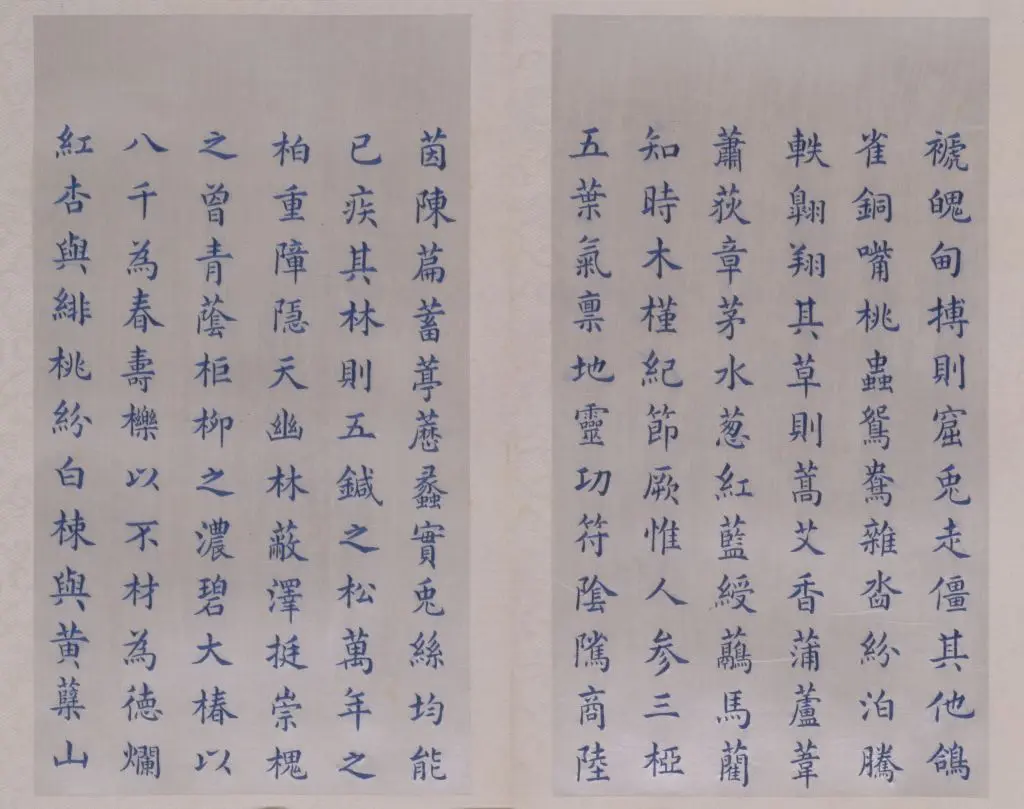 褫魄甸搏則窟兔走僵其他鴿
雀銅嘴桃蟲鴛鴦雜沓紛泊騰
軼翺翔其草則蒿艾香蒲蘆葦
蕭荻章茅水葱紅藍綬虉馬藺
知時木槿紀節厥惟人參三椏
五葉氣禀地靈功符陰隲商陸
茵陳萹蓄葶藶蠡實兔絲均能
已疾其林則五鍼之松萬年之
柏重障隱天幽林蔽澤挺崇槐
之曾青蔭柜柳之濃碧大椿以
八千為春壽櫟以不材為德爛
紅杏與緋桃紛白楝與黄蘗山